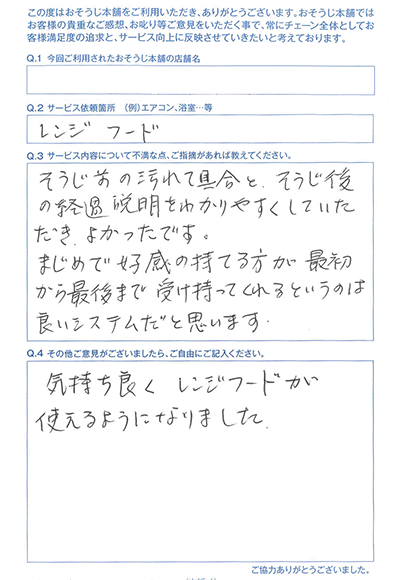 この度はおそうじ本舗をご利用いただき、ありがとうございます。おそうじ本舗では
お客様の貴重なご感想、お叱り等ご意見をいただく事で、常にチェーン全体としてお
客様満足度の追求と、サービス向上に反映させていきたいと考えております。
Q.1 今回ご利用されたおそうじ本舗の店舗名
Q.2 サービス依頼箇所 (例)エアコン、浴室…等
レンジ フード
Q.3 サービス内容について不満な点、ご指摘があれば教えてください。
そうじ前の汚れて具合と、そうじ後
の経過説明をわかりやすくしていた
だき、よかったです。
まじめで好感の持てる方が最初
から最後まで受け持ってくれるというのは
良いシステムだと思います.
Q.4 その他ご意見がございましたら、ご自由にご記入ください。
気持ち良く レンジフードが
使えるようになりました.
ご協力ありがとうございました。